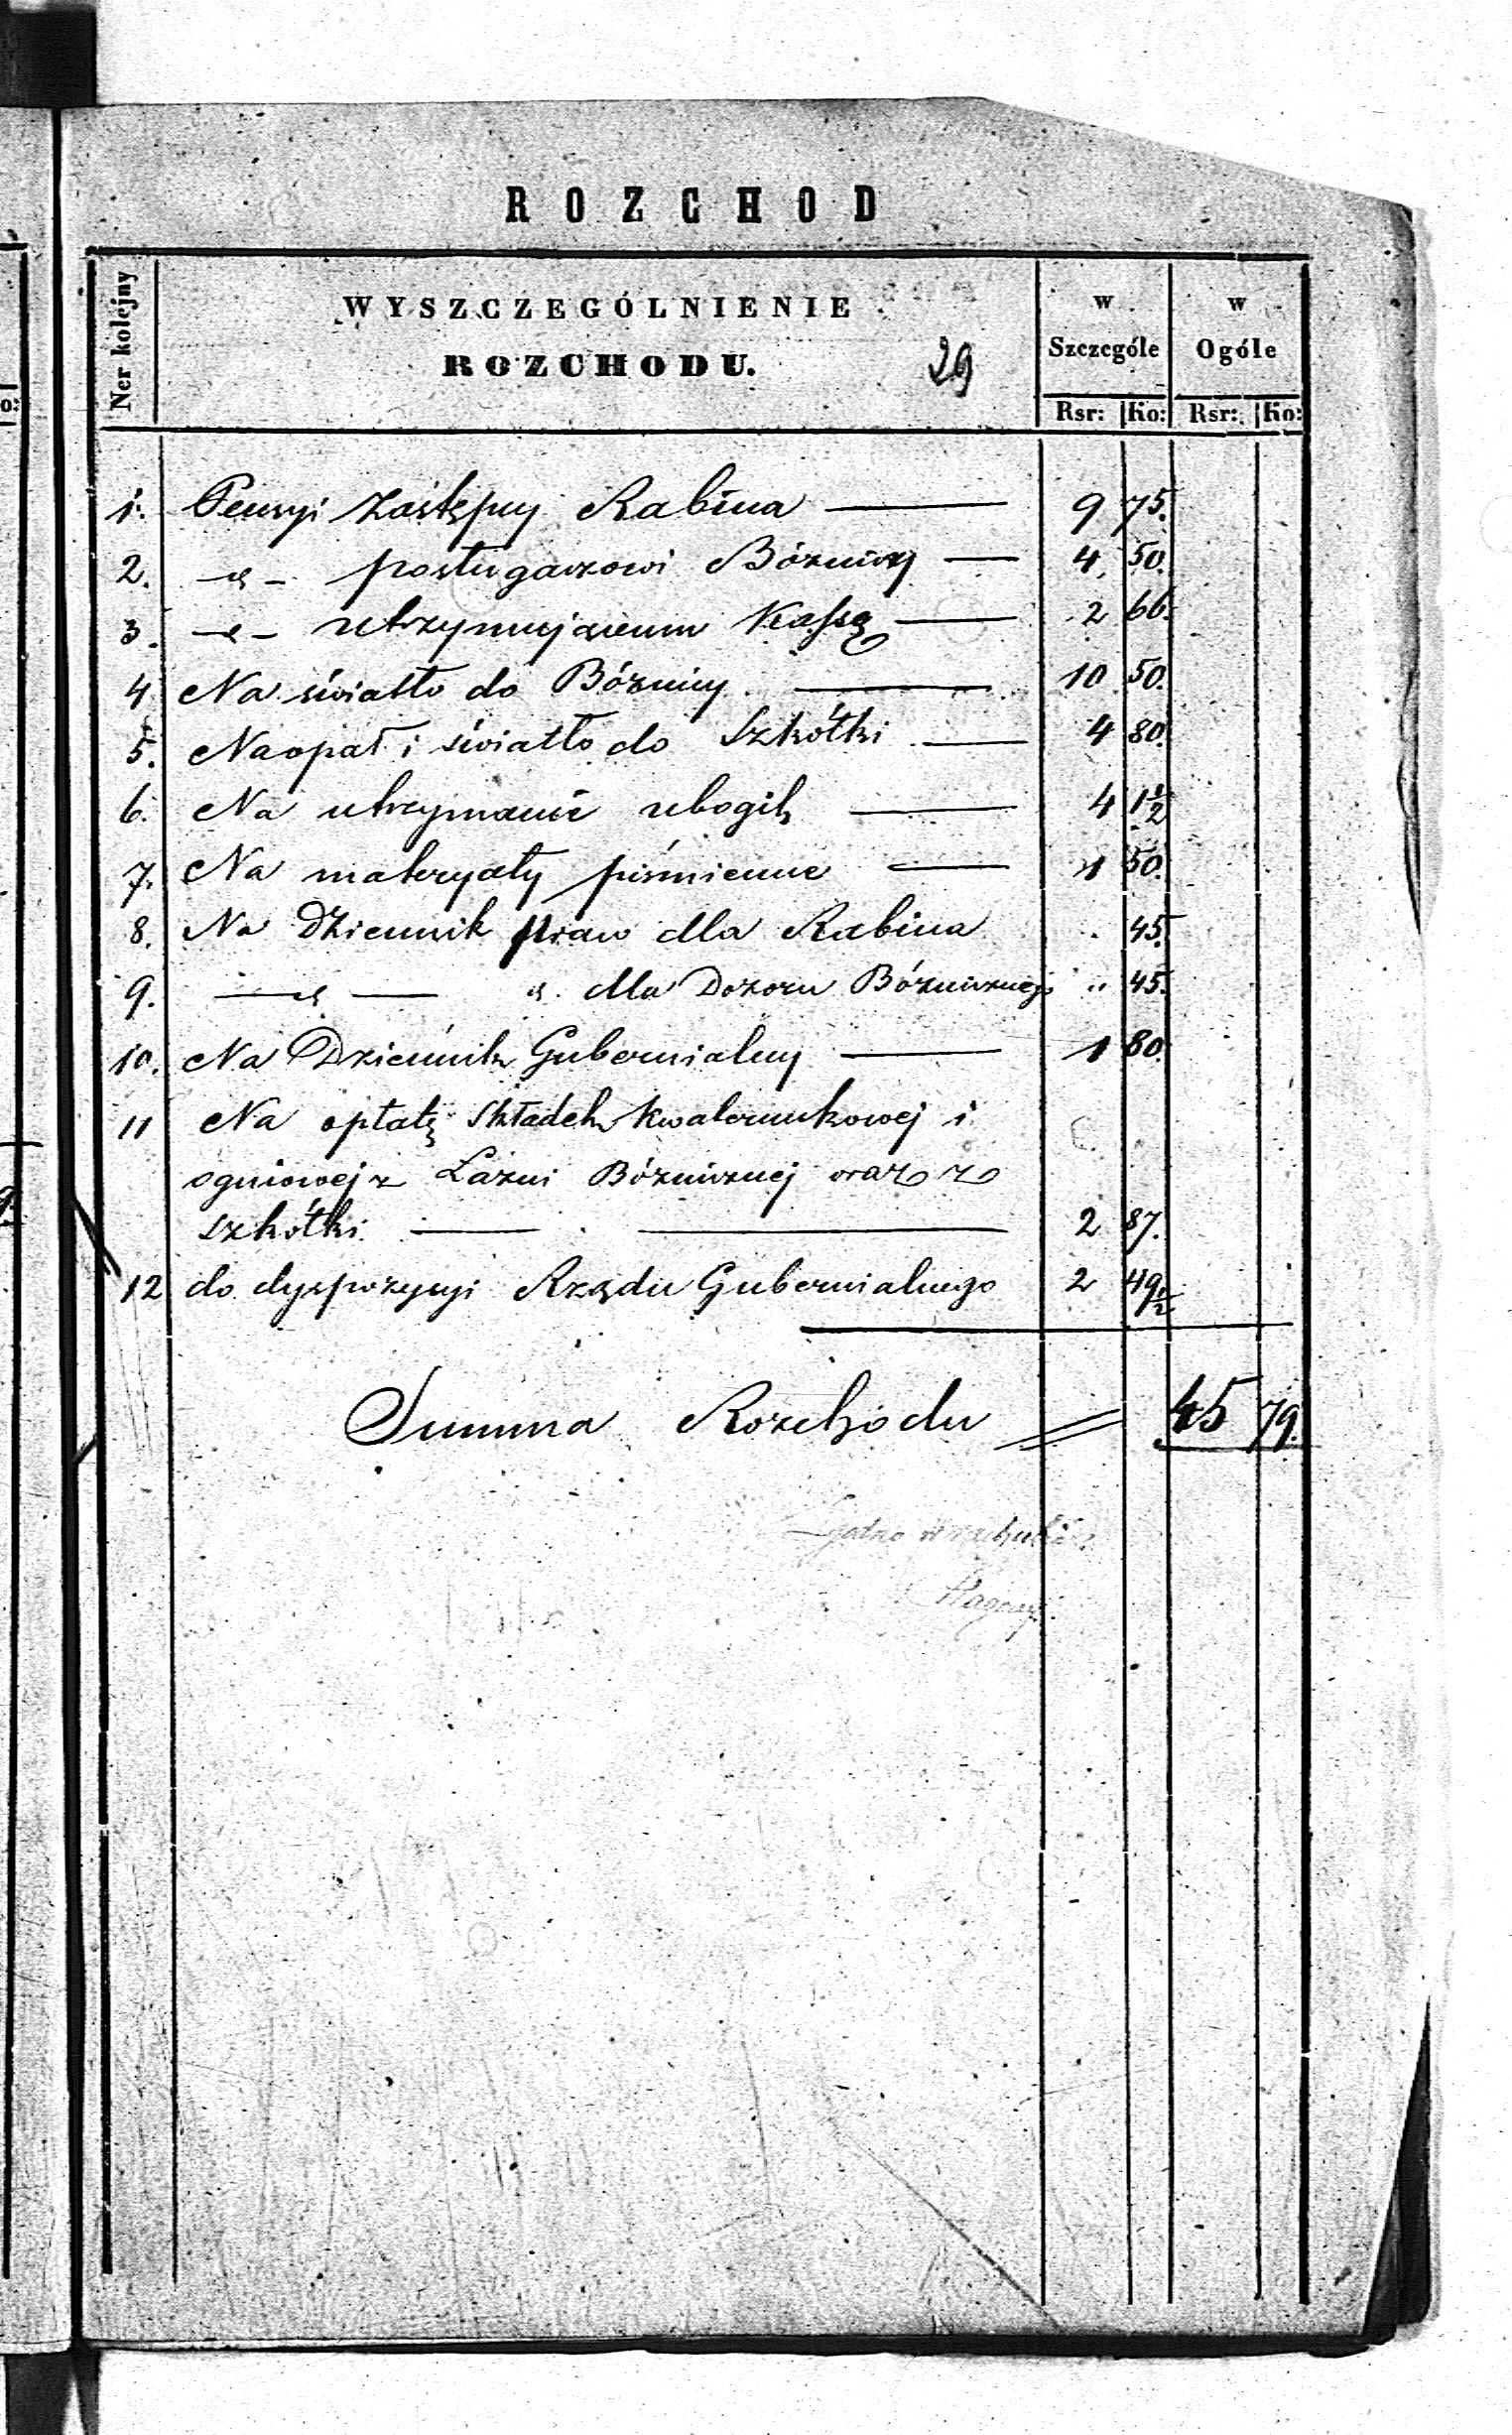 ROZCHOD
Ner kolejny
WYSZCZEGÓLNIENIE
ROZCHODU.
29
w Szczególe
w Ogóle
Rsr: Ko: Rsr: Ko:
1. Pensyi Zastępcy Rabina 9 75.
2. -„- posługaczowi Bóżnicy 4. 50.
3. -„- utrzymującemu Kassę 2 66.
4 Na światło do Bóżnicy 10 50.
5. Na opał i światło do Szkółki 4 80.
6. Na utrzymanie ubogich 4 1½
7. Na materyały piśmienne 1 50.
8. Na Dziennik praw dla Rabina . 45.
9. —„— „. dla Dozoru Bóżniczego „ 45.
10. Na Dziennik Gubernialny 1 80.
11 Na opłatę Składek kwaterunkowej i
ogniowej z Łaźni Bóżnicznej oraz z
szkółki. 2 87.
12 do dyspozycyi Rządu Gubernialnego 2 49½
Summa Rozchodu 45 79.